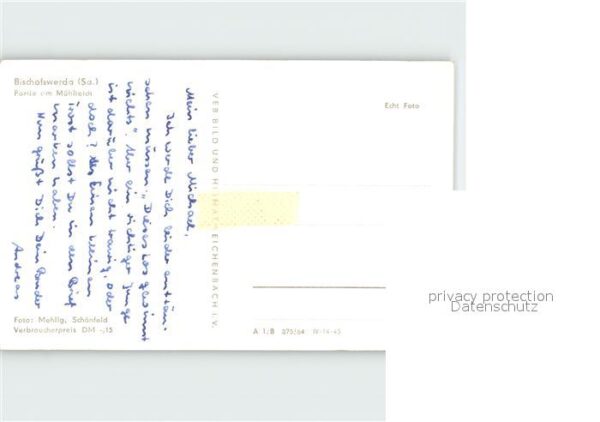 Bischofswerda (Sa.)
Partie am Mühlteich
Mein lieber Michael,
Ich werde Dich leider enttäu-
schen müssen: „Dieses Los gewinnt
nichts". Aber ein richtiger Junge
ist darüber nicht traurig, oder
doch? einen kleinen
sollst Du in dem Brief
haben.
Nun grüßt Dich Dein Bruder
Andreas
Foto: Mehlig, Schönfeld
Verbraucherpreis DM -,15
VEB BILD UND HEIMAT REICHENBACH I. V.
Echt Foto
A 1/B 875/64 IV-14-45
privacy protection
Datenschutz